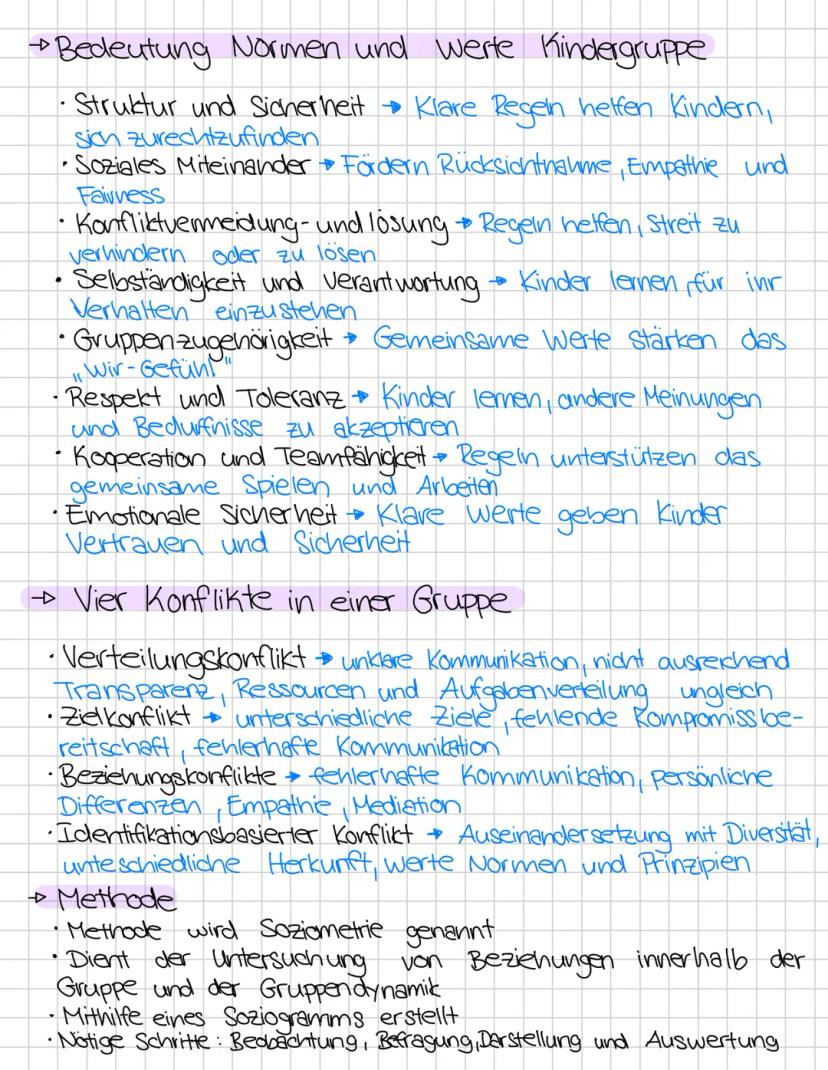 → Bedeutung Normen und Werte Kindergruppe
· Struktur und Sicherheit → Klare Regeln helfen Kindern,
sich zurechtzufinden
· Soziales Miteinander → Fördern Rücksichtnahme, Empathie und
Fairness
· Konfliktvermeidung- und lösung → Regeln helfen, Streit zu
verhindern oder zu lösen
· Selbständigkeit und Verantwortung → Kinder lernen, für ihr
Verhalten einzustehen
· Gruppenzugehörigkeit → Gemeinsame Werte stärken das
„Wir-Gefühl"
· Respekt und Toleranz → Kinder lernen, andere Meinungen
und Bedürfnisse zu akzeptieren
· Kooperation und Teamfähigkeit → Regeln unterstützen das
gemeinsame Spielen und Arbeiten
· Emotionale Sicherheit → Klare Werte geben Kinder
Vertrauen und Sicherheit
→ Vier Konflikte in einer Gruppe
· Verteilungskonflikt → unklare Kommunikation, nicht ausreichend
Transparenz, Ressourcen und Aufgabenverteilung ungleich
· Zielkonflikt → unterschiedliche Ziele, fehlende Kompromissbe-
reitschaft, fehlerhafte Kommunikation
· Beziehungskonflikte → fehlerhafte Kommunikation, persönliche
Differenzen, Empathie, Mediation
· Identifikationsbasierter Konflikt → Auseinandersetzung mit Diversität,
unteschiedliche Herkunft, Werte Normen und Prinzipien
→ Methode
· Methode wird Soziometrie genannt
· Dient der Untersuchung von Beziehungen innerhalb der
Gruppe und der Gruppendynamik
· Mithilfe eines Soziogramms erstellt
· Nötige Schritte: Beobachtung, Befragung, Darstellung und Auswertung